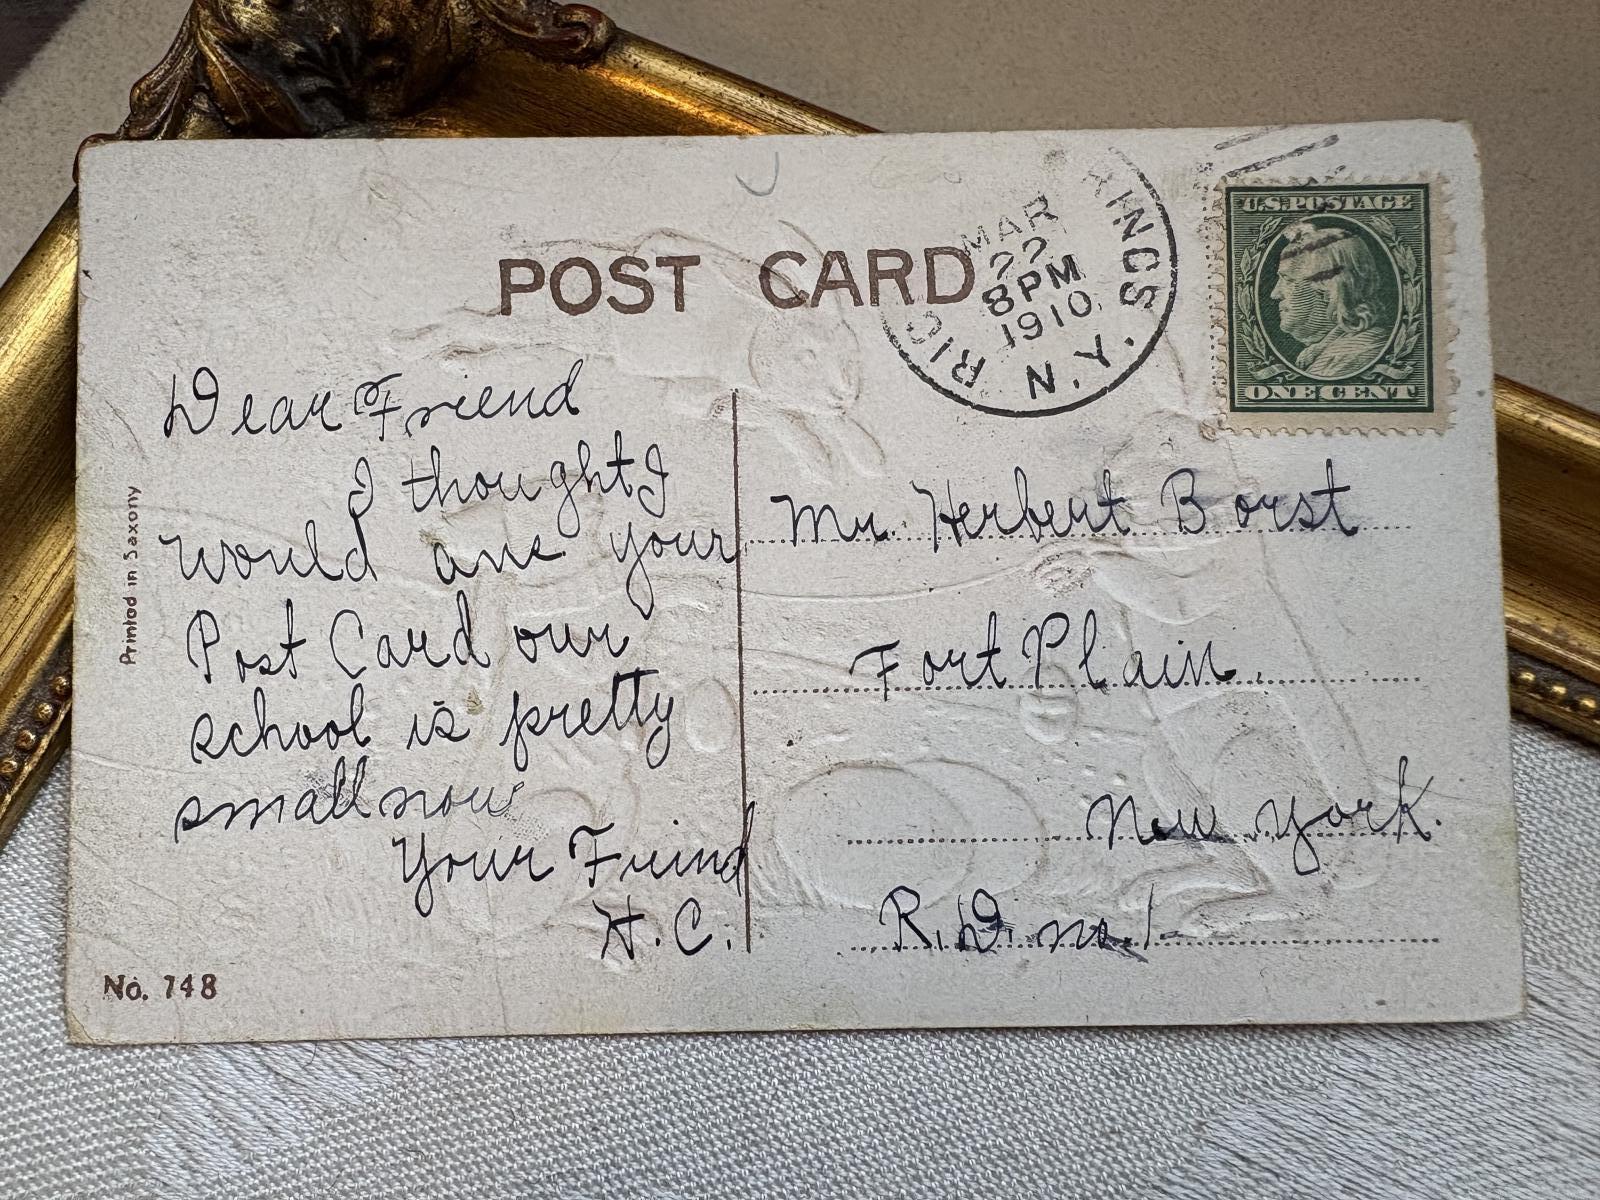 POST CARD
MAR
22
8PM
1910
RIC
KINGS
N.Y.
U.S. POSTAGE
ONE CENT
Dear Friend
I thought I
would ans your
Post Card our
school is pretty
small now
Your Friend
H. C.
Mr. Herbert Borst
Fort Plain.
New York.
R.D. no. 1
Printed in Saxony
No. 748